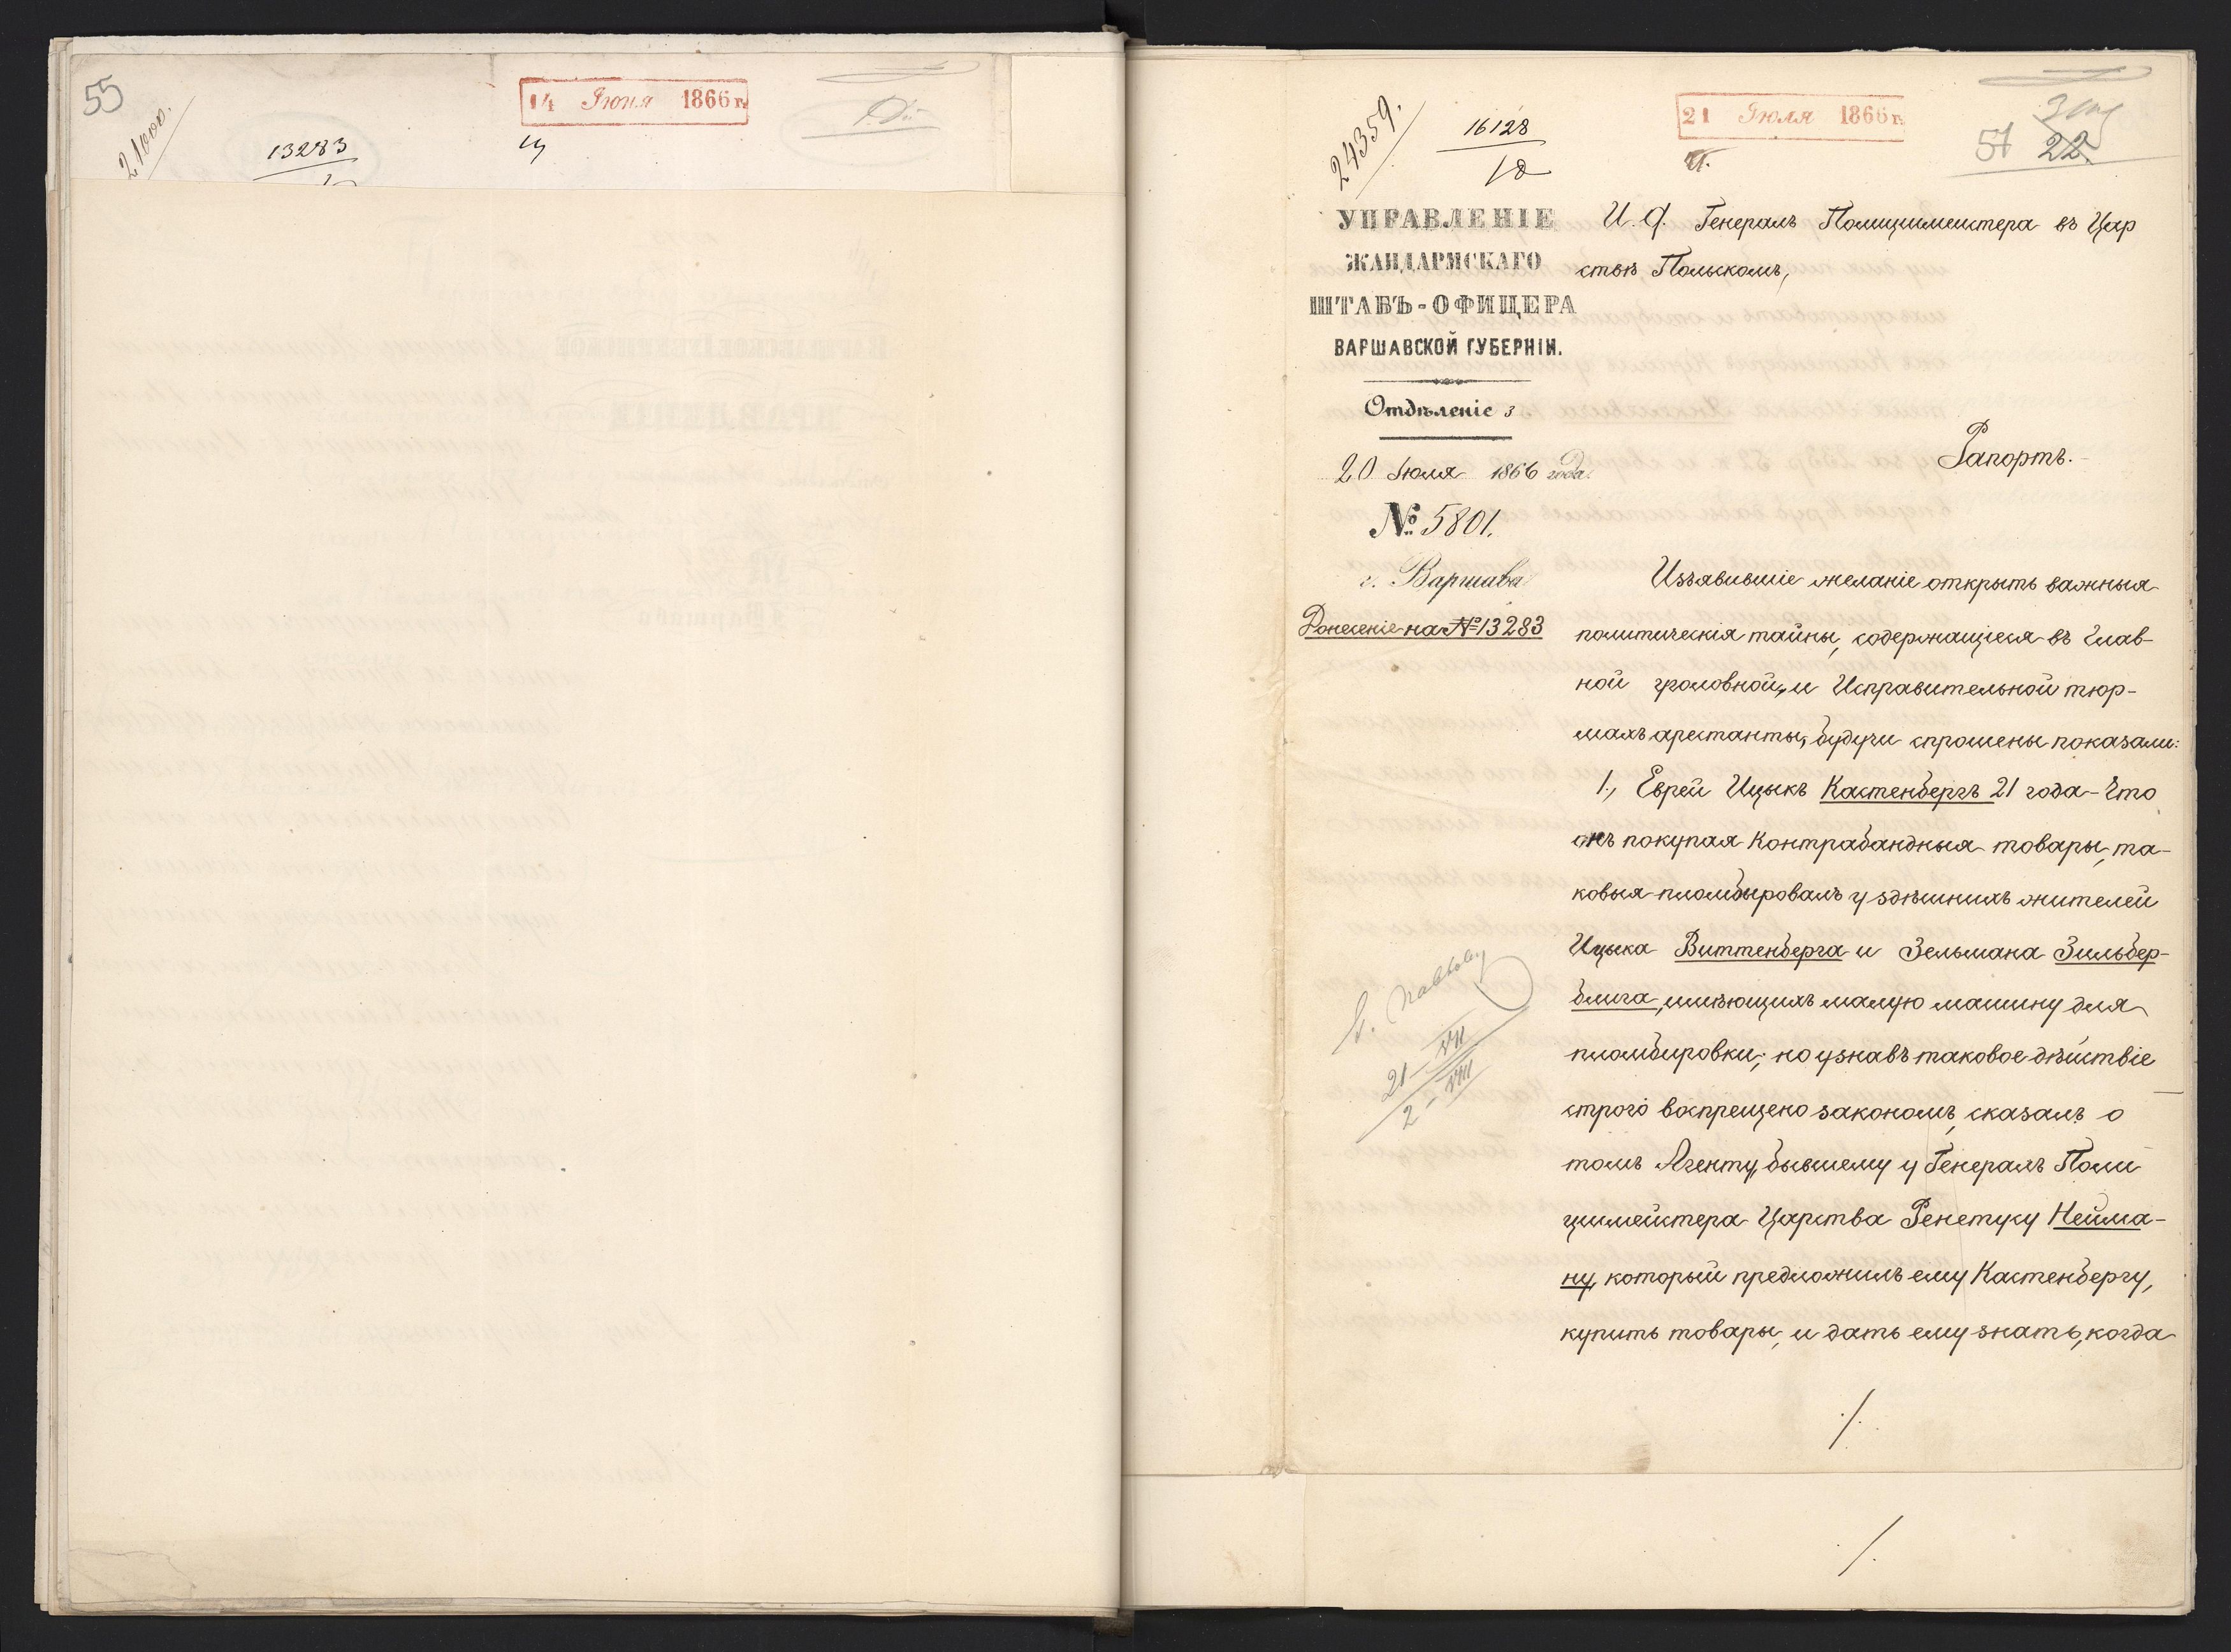 55
21000.
13283
14 Іюня 1866 г.
24359.
16128
21 Іюля 1866 г.
57 22.
УПРАВЛЕНІЕ
ЖАНДАРМСКАГО
ШТАБЪ-ОФИЦЕРА
ВАРШАВСКОЙ ГУБЕРНІИ.
Отдѣленіе 3
20 Іюля 1866 года.
№ 5801.
г. Варшава
Донесеніе на № 13283
И. Д. Генералъ Полицимейстера въ Цар
ствѣ Польскомъ,
Рапортъ.
Изъявившіе желаніе открыть важныя
политическія тайны, содержащіеся въ Глав-
ной уголовной, и Исправительной тюр-
махъ арестанты, будучи спрошены показали:
1., Еврей Ицыкъ Кастенбергъ 21 года - Что
онъ покупая контрабандныя товары, та-
ковыя пломбировалъ у здѣшнихъ жителей
Ицыка Виттенберга и Зельмана Зильбер-
блига, имѣющихъ малую машину для
пломбировки; но узнавъ таковое дѣйствіе
строго воспрещено закономъ, сказалъ о
томъ Агенту, бывшему у Генералъ Поли
цимейстера Царства Ренетуху Нейма-
ну, который предложилъ ему Кастенбергу,
купить товары, и дать ему знать, когда
./.
./.
21 - VII
2 - VIII